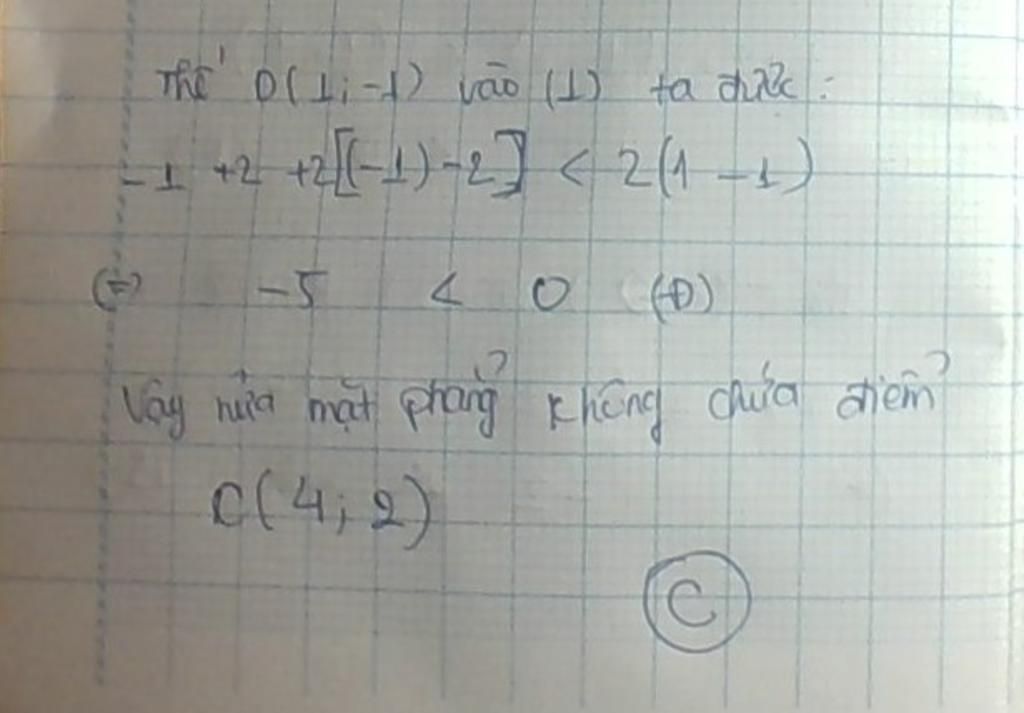 Thế D(1; -1) vào (1) ta được:
-1 +2 +2[(-1)-2] < 2(1 -1)
(=) -5 < 0 (Đ)
Vậy nửa mặt phẳng không chứa điểm
C(4; 2)
C